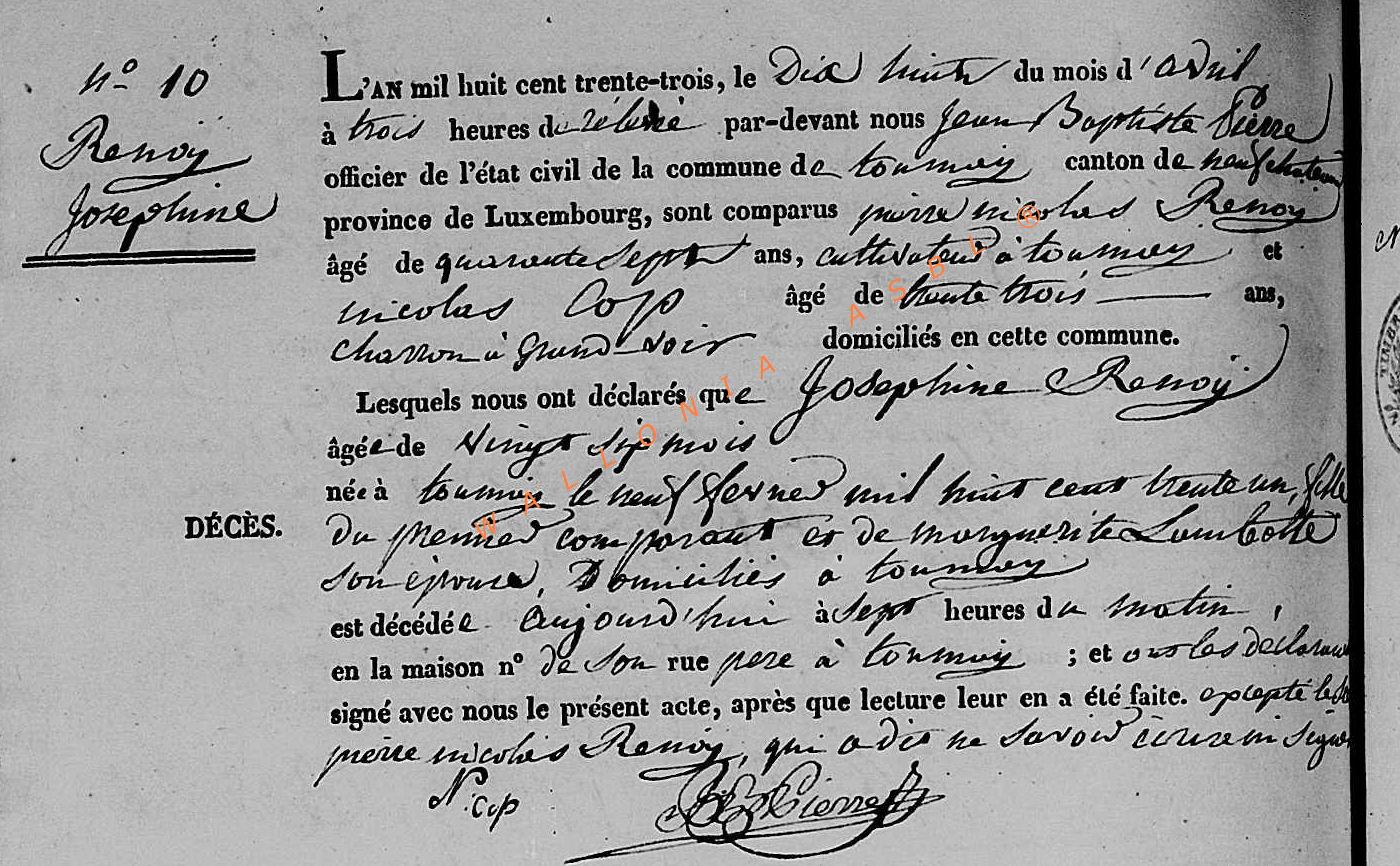 n.º 10
Renoÿ
Josephine
L'AN mil huit cent trente-trois, le Dix huit du mois d'avril
à trois heures de relevé par-devant nous Jean Baptiste Pierre
officier de l'état civil de la commune de tournay canton de neufchateau
province de Luxembourg, sont comparus pierre nicolas Renoy
âgé de quarente sept ans, cultivateur à tournay et
nicolas Cop âgé de trente trois ans,
charron à Grand-voir domiciliés en cette commune.
Lesquels nous ont déclarés que Josephine Renoÿ
âgée de vingt six mois
née à tournay le neuf fevrier mil huit cent trente un, fille
DÉCÈS.
du premier comparant et de marguerite Lambotte
son épouse, Domiciliés à tournay
est décédée aujourd'hui à sept heures du matin,
en la maison nº de son rue pere à tournay ; et ont les declarans
signé avec nous le présent acte, après que lecture leur en a été faite. excepté le
pierre nicolas Renoy, qui a dit ne savoir écrire ni signer
N. Cop
JB Pierre
WALLONIA ASBL ®